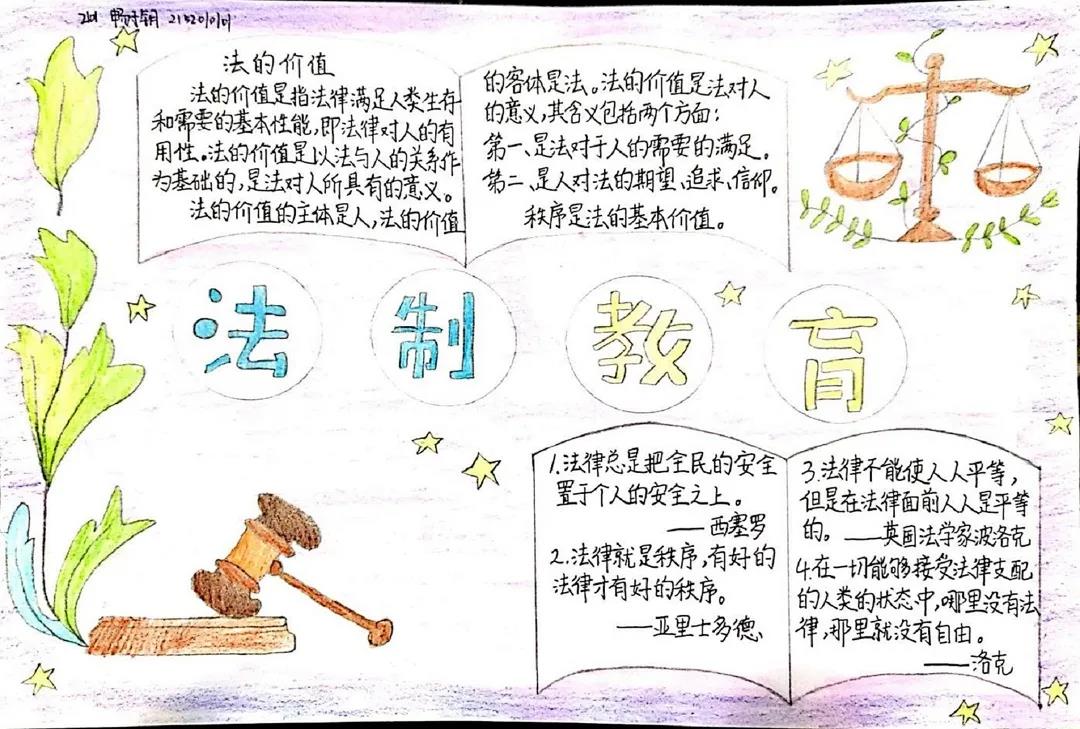 法的价值
法的价值是指法律满足人类生存
和需要的基本性能,即法律对人的有
用性。法的价值是以法与人的关系作
为基础的,是法对人所具有的意义。
法的价值的主体是人,法的价值
的客体是法。法的价值是法对人
的意义,其含义包括两个方面:
第一、是法对于人的需要的满足。
第二、是人对法的期望、追求、信仰。
秩序是法的基本价值。
法制教育
1.法律总是把全民的安全
置于个人的安全之上。
——西塞罗
2.法律就是秩序,有好的
法律才有好的秩序。
——亚里士多德
3.法律不能使人人平等,
但是在法律面前人人是平等
的。——英国法学家波洛克
4.在一切能够接受法律支配
的人类的状态中,哪里没有法
律,那里就没有自由。
——洛克